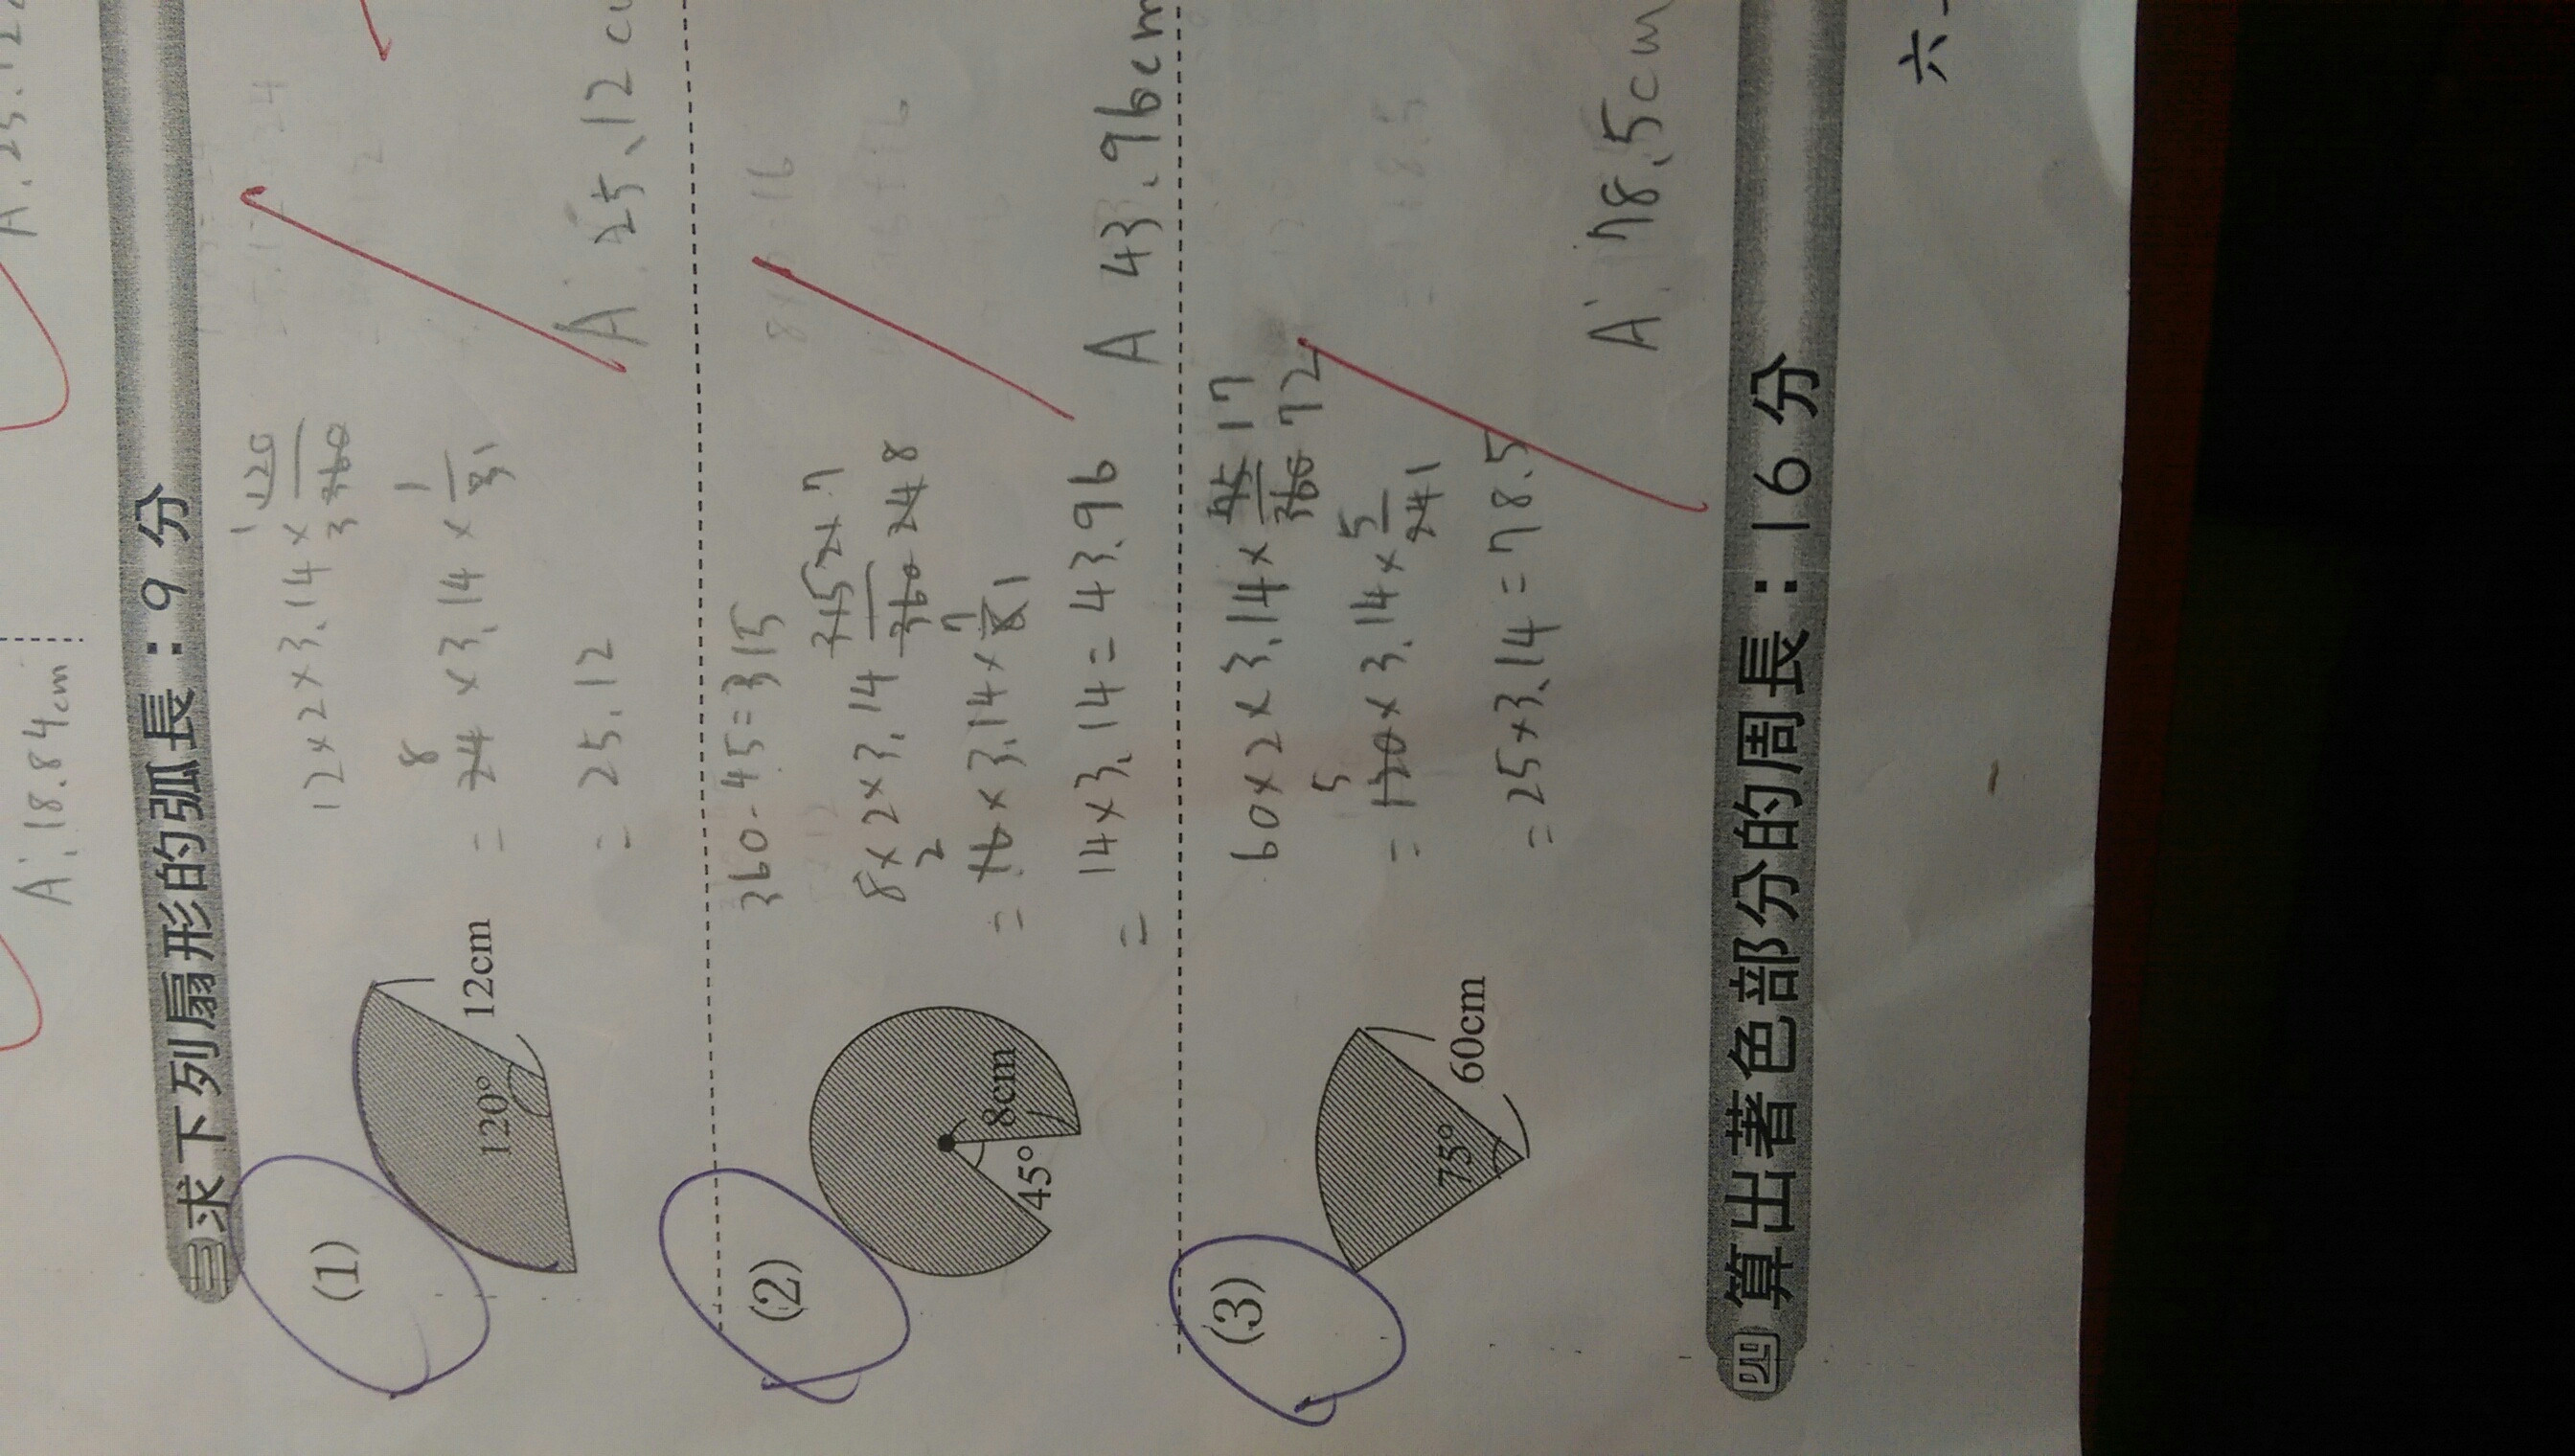 A:18.84cm
A:25.12
㊂求下列扇形的弧長：9 分
(1)
120°
12cm
12×2×3.14×120/360 1 3
=24×3.14×1/3 8 1
=25.12
A:25.12c
(2)
45°
8cm
360-45=315
8×2×3.14 315/360 21 7 24 8
=16×3.14×7/8 2 1
=14×3.14=43.96
A 43.96cm
(3)
75°
60cm
60×2×3.14× 17 360 72
=120×3.14×5/24 5 1
=25×3.14=78.5
A:78.5cm
㊃算出著色部分的周長：16 分
六-